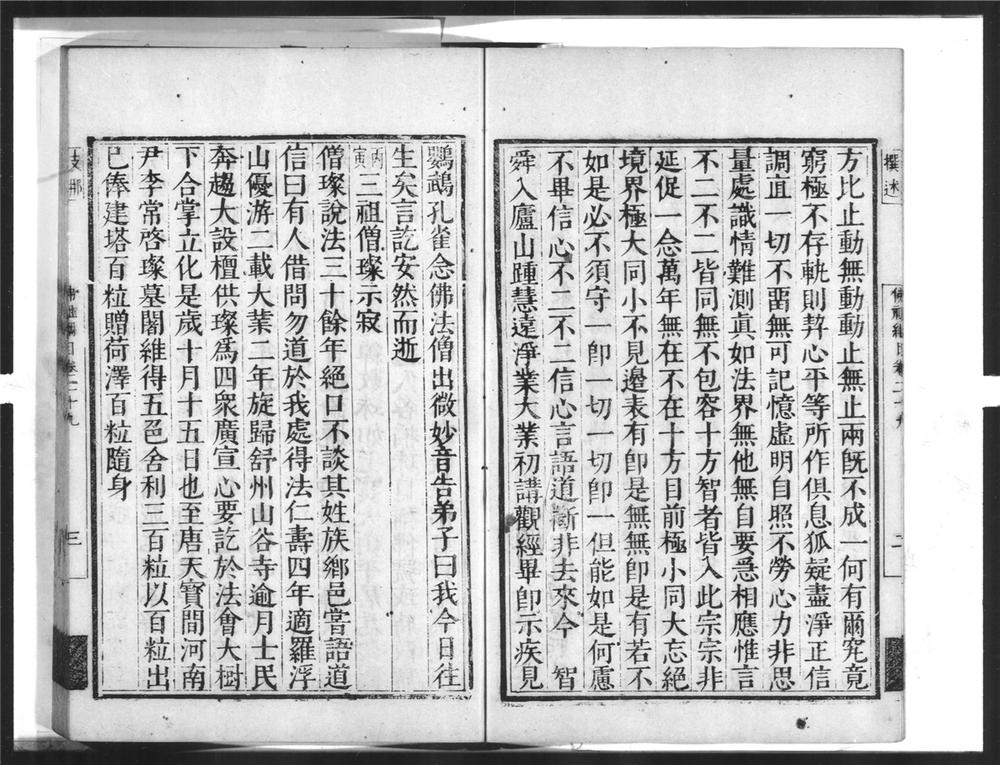 方比止動無動動止無止兩旣不成一何有爾究竟
窮極不存軌則契心平等所作俱息狐疑盡淨正信
調直一切不畱無可記憶虛明自照不勞心力非思
量處識情難測眞如法界無他無自要急相應惟言
不二不二皆同無不包容十方智者皆入此宗宗非
延促一念萬年無在不在十方目前極小同大忘絕
境界極大同小不見邊表有卽是無無卽是有若不
如是必不須守一卽一切一切卽一但能如是何慮
不畢信心不二不二信心言語道斷非去來今 智
舜入廬山踵慧遠淨業大業初講觀經畢卽示疾見
二
鸚鵡孔雀念佛法僧出微妙音吿弟子曰我今日往
生矣言訖安然而逝
丙寅三祖僧璨示寂
僧璨說法三十餘年絕口不談其姓族鄉邑嘗語道
信曰有人借問勿道於我處得法仁壽四年適羅浮
山優游二載大業二年旋歸舒州山谷寺逾月士民
奔趨大設檀供璨爲四衆廣宣心要訖於法會大樹
下合掌立化是歲十月十五日也至唐天寶間河南
尹李常啓璨墓闍維得五色舍利三百粒以百粒出
己俸建塔百粒贈荷澤百粒隨身
三